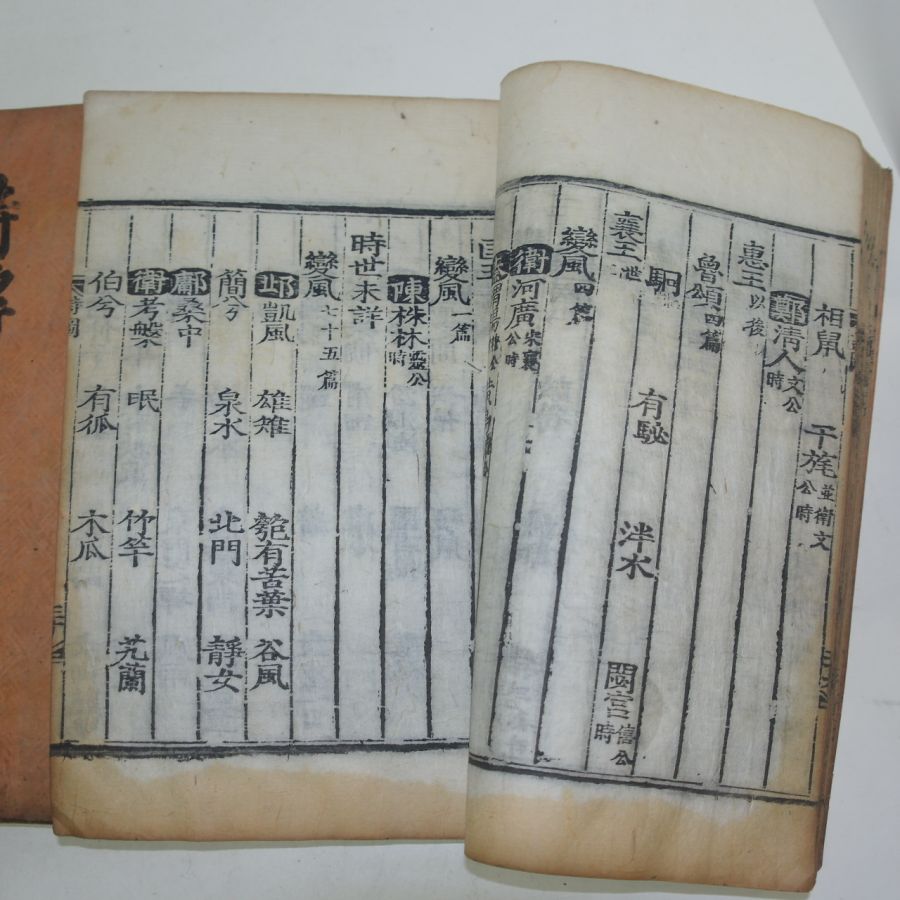 相鼠 干旄 並衛文公時
鄭 清人 文公時
惠王 以後
魯頌 四篇
駉 有駜 泮水 閟宮 僖公時
襄王 世
變風 四篇
衛 河廣 宋襄公時
匡王
變風 一篇
陳 株林 靈公時
時世未詳
變風 七十五篇
邶 凱風 雄雉 匏有苦葉 谷風
簡兮 泉水 北門 靜女
鄘 桑中
衛 考槃 氓 竹竿 芄蘭
伯兮 有狐 木瓜